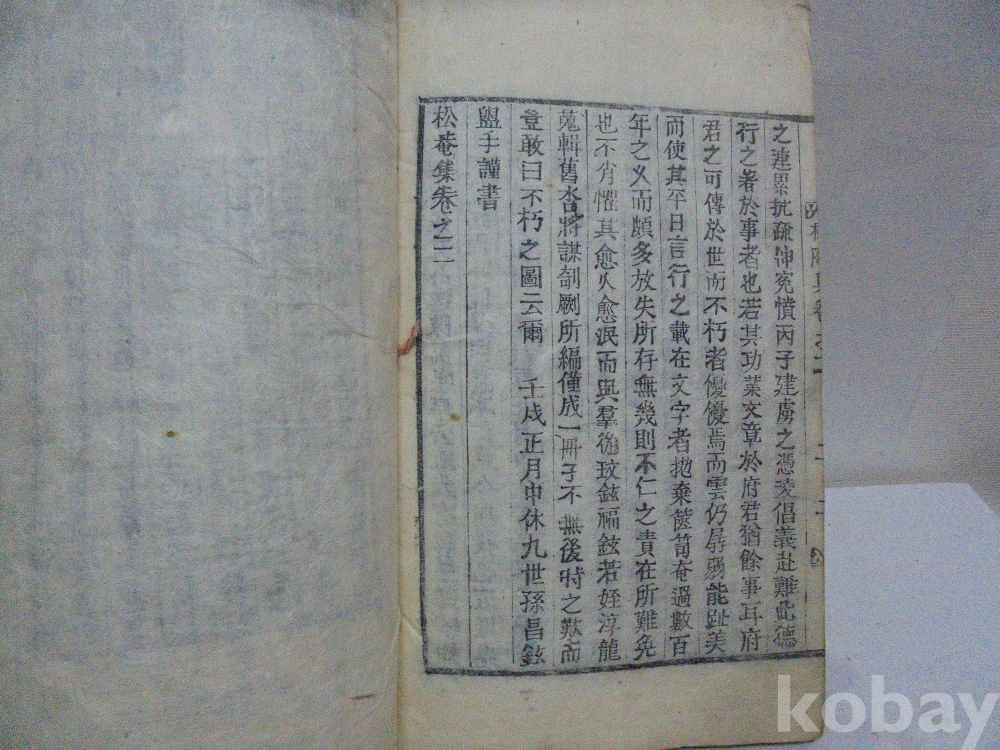 之連累抗疏伸寃憤丙子建虜之憑凌倡義赴難此德
行之著於事者也若其功業文章於府君猶餘事耳府
君之可傳於世而不朽者優優焉而雲仍孱弱能趾美
而使其平日言行之載在文字者抛棄篋笥奄過數百
年之久而頗多放失所存無幾則不仁之責在所難免
也不肖懼其愈久愈泯而與羣從玹鉉福鉉若姪淳龍
蒐輯舊本將謀剞劂所編僅成一冊子不無後時之歎而
豈敢曰不朽之圖云爾 壬戌正月中休九世孫昌鉉
盥手謹書
松菴集卷之二
kobay